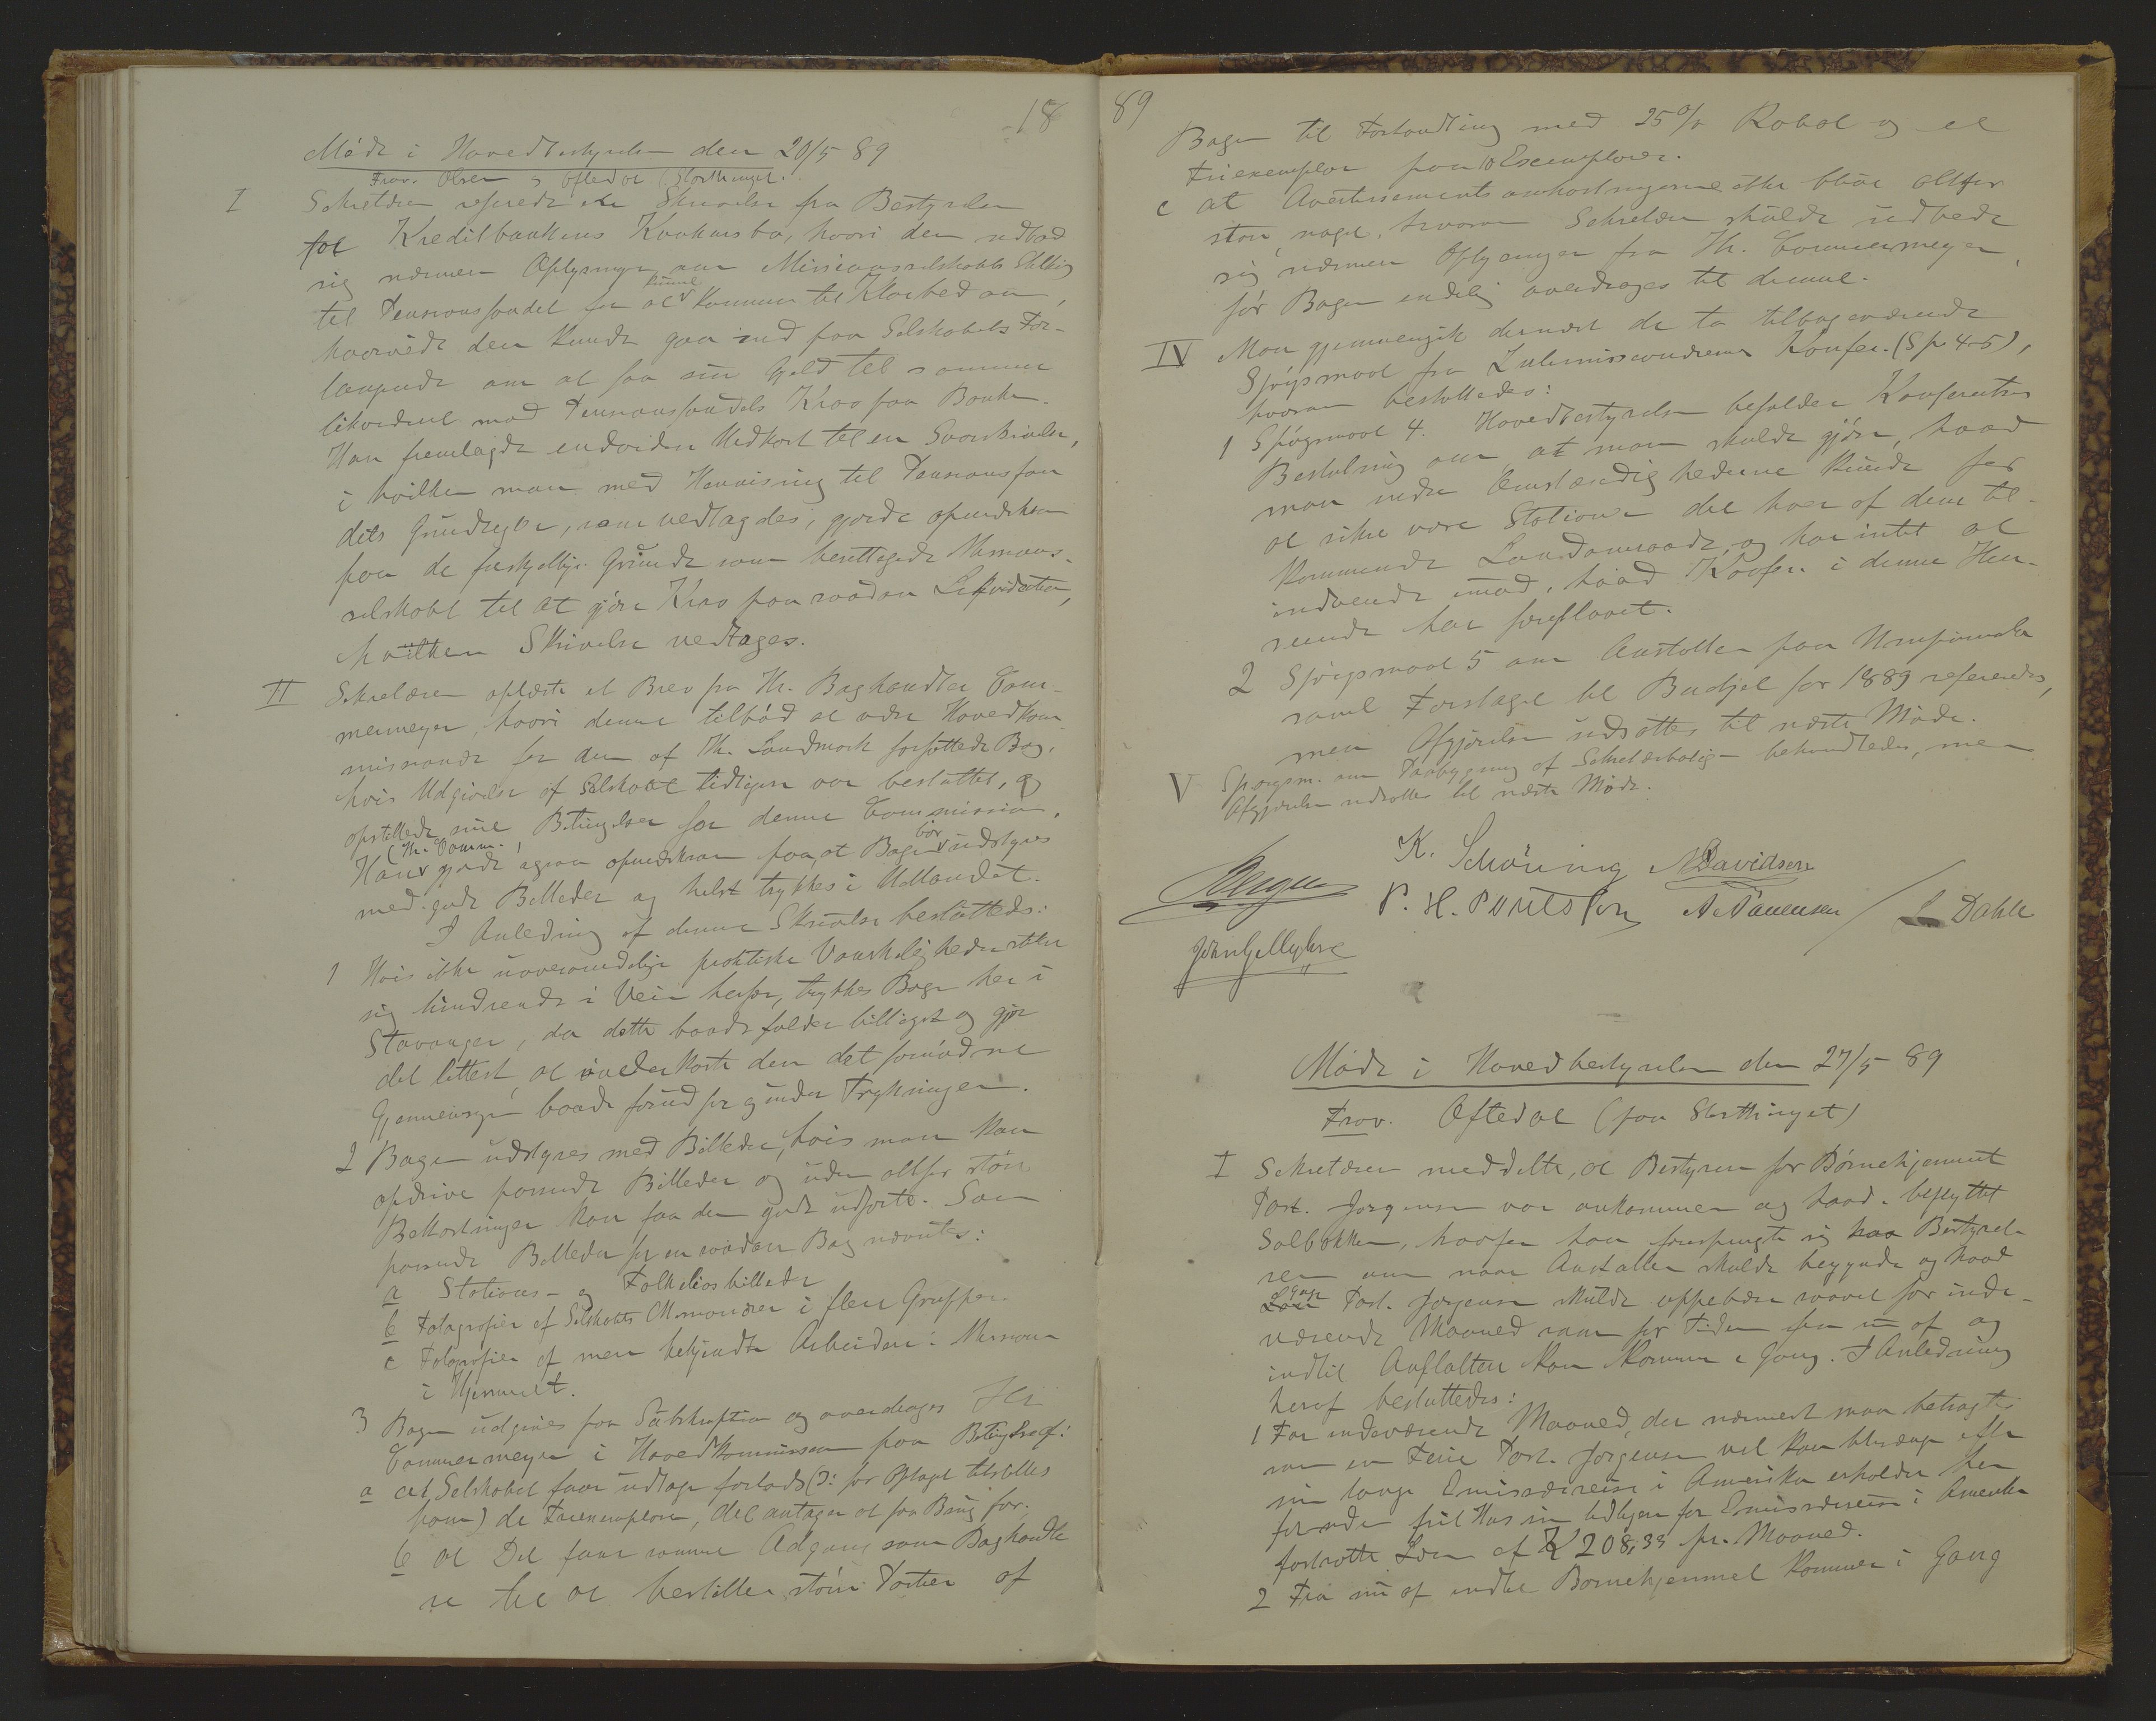 18
Møde i Hovedbestyrelsen den 20/5 89
Frav. Olsen og Oftedal (Storthinget.)
I Sekretæren referede en Skrivelse fra Bestyrelsen
for Kreditbankens Konkursbo, hvori den udbad
sig nærmere Oplysninger om Missionsselskabets Stilling
til Pensionsfondet for at kunne komme til Klarhed om,
hvorvidt den kunde gaa ind paa Selskabets For-
langende om at faa sin Gjeld til samme
likvideret mod Pensionsfondets Krav paa Banken.
Han fremlagde endvidere Udkast til en Svarskrivelse,
i hvilken man med Henvisning til Pensionsfon
dets Grundregler, som vedlagdes, gjorde opmerksom
paa de forskjellige Grunde som berettigede Missions-
selskabet til at gjøre Krav paa saadan Likvidation,
hvilken Skrivelse vedtages.
II Sekretæren oplæste et Brev fra Hr. Boghandler Cam-
mermeyer, hvori denne tilbød at være Hovedkom
missionær for den af Th. Landmark forfattede Bog,
hvis Udgivelse af Selskabet tidligere var besluttet, og
opstillede sine Betingelser for denne Commission.
Han (Hr. Camm.) gjorde ogsaa opmerksom paa, at Bogen bør udstyres
med gode Billeder og helst trykkes i Udlandet.
I Anledning af denne Skrivelse besluttedes:
1 Hvis ikke uovervindelige praktiske Vanskeligheder stiller
sig hindrende i Veien herfor, trykkes Bogen her i
Stavanger, da dette baade falder billigst og gjør
det lettest at underkaste den det fornødne
Gjennemsyn baade forud for og under Trykningen.
2 Bogen udstyres med Billeder, hvis man kan
opdrive passende Billeder og uden altfor store
Bekostninger kan faa dem godt udførte. Som
passende Billeder for en saadan Bog nævntes:
a Stations- og Folkelivsbilleder
b Fotografier af Selskabets Missionærer i flere Grupper.
c Fotografier af mere bekjendte Arbeidere i Missionen
i Hjemmet.
3 Bogen udgives paa Subskription og overdrages Hr
Cammermeyer i Hovedkommission paa Betingelse af:
a at Selskabet faar udtage forlods (ɔ: før Oplaget tilstilles
ham) de Friexemplarer, det antager at faa Brug for.
b at Det faar samme Adgang som Boghandle
re til at bestille større Partier af
89
Bogen til Forhandling med 25 % Rabat og et
Friexemplar paa 10 Exemplarer.
c at Avertissementsomkostningerne ikke blive altfor
store, noget, hvorom Sekretæren skulde udbede
sig nærmere Oplysninger fra Hr. Cammermeyer,
før Bogen endelig overdrages til denne.
IV Man gjennemgik dernæst de to tilbageværende
Spørgsmaal fra Zulumissionærernes Konfer. (Sp. 4-5),
hvorom besluttedes:
1 Spørgsmaal 4. Hovedbestyrelsen befalder Konferentsens
Beslutning om, at man skulde gjøre, hvad
man under Omstændighederne kunde for
at sikre vore Stationer det hver af dem til-
kommende Landomraade, og har intet at
indvende imod, hvad Konfer. i denne Hen-
seende har foreslaaet.
2 Spørgsmaal 5 om Anstalten paa Umpumulo
samt Forslaget til Budjet for 1889 refereredes,
men Afgjørelsen udsattes til næste Møde.
V Spørgsm. om Paabygning af Sekretærbolig behandledes, men
Afgjørelsen udsattes til næste Møde.
K. Schøning NDavidsen
P. H. Poulsson L Dahle
Møde i Hovedbestyrelsen den 27/5 89
Frav. Oftedal (paa Storthinget)
I Sekretæren meddelte, at Bestyreren for Børnehjemmet
Past. Jørgensen var ankommen og havde beflyttet
Solbakken, hvorfor han forespurgte sig hos Bestyrel-
sen om naar Anstalten skulde begynde og hvad
Gage Past. Jørgensen skulde oppebære saavel for inde-
værende Maaned som for Tiden fra nu af og
indtil Anstalten kan komme i Gang. I Anledning
heraf besluttedes:
1 For indeværende Maaned, der nærmest maa betragtes
som en Ferie Past. Jørgensen vel kan tiltrænge efter
sin lange Emissærreise i Amerika erholder han
foruden frit Hus sin tidligere for Emissærreisen i Amerika
fastsatte Løn af K 208,33 pr. Maaned.
2 Fra nu af indtil Børnehjemmet kommer i Gang